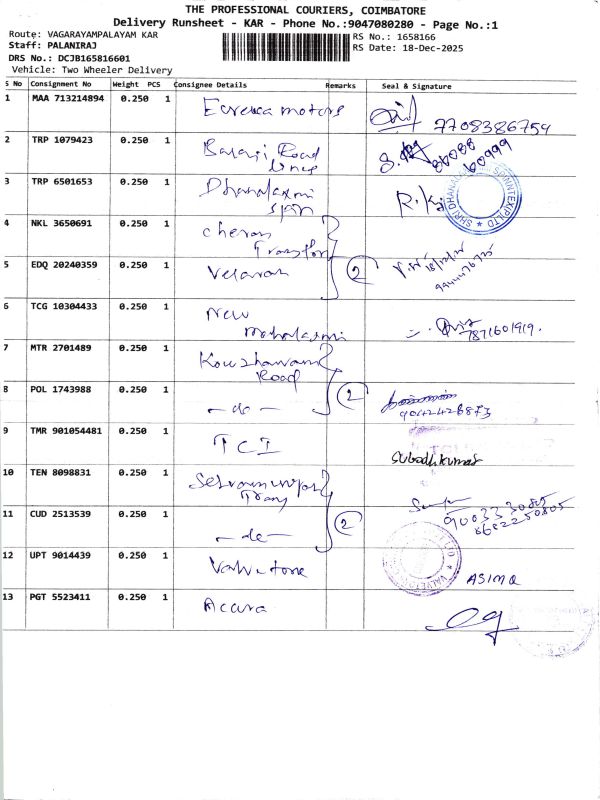 THE PROFESSIONAL COURIERS, COIMBATORE
Delivery Runsheet - KAR - Phone No.:9047080280 - Page No.:1
Route: VAGARAYAMPALAYAM KAR
RS No.: 1658166
Staff: PALANIRAJ
RS Date: 18-Dec-2025
DRS No.: DCJB165816601
Vehicle: Two Wheeler Delivery
S No Consignment No Weight PCS Consignee Details Remarks Seal & Signature
1 MAA 713214894 0.250 1 Eureka motors 7708386759
2 TRP 1079423 0.250 1 Balaji Road Lines
3 TRP 6501653 0.250 1 Dhanalaxmi Spin
4 NKL 3650691 0.250 1 Cheran Transport
5 EDQ 20240359 0.250 1 Velavan 2
6 TCG 10304433 0.250 1 New Mahalaxmi 7871601919.
7 MTR 2701489 0.250 1 Road
8 POL 1743988 0.250 1 - do - 2
9 TMR 901054481 0.250 1 TCI Subadhkumar
10 TEN 8098831 0.250 1
11 CUD 2513539 0.250 1 - do - 2
12 UPT 9014439 0.250 1 Valvetone ASIMA
13 PGT 5523411 0.250 1 Accura